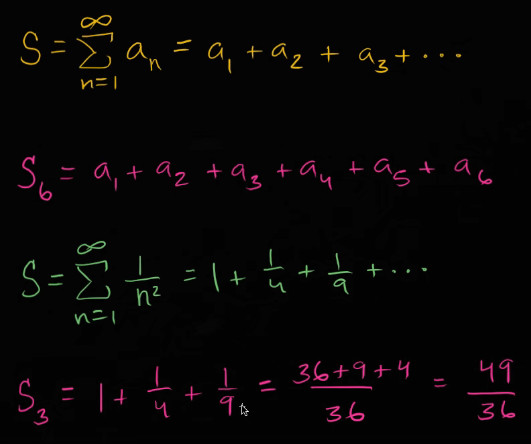 S = ∑_{n=1}^{∞} a_n = a_1 + a_2 + a_3 + ⋯
S_6 = a_1 + a_2 + a_3 + a_4 + a_5 + a_6
S = ∑_{n=1}^{∞} 1/n² = 1 + 1/4 + 1/9 + ⋯
S_3 = 1 + 1/4 + 1/9 = (36+9+4)/36 = 49/36